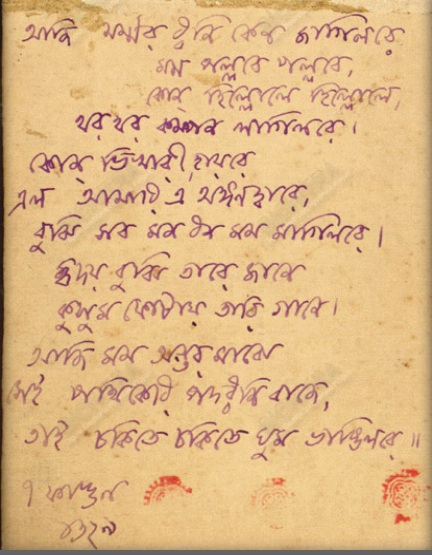 আজি মর্ম্মর ধ্বনি কেন জাগিলরে
মম পল্লবে পল্লবে,
কোন্ হিল্লোলে হিল্লোলে,
থর থর কম্পন লাগিলরে।
কোন্ ভিখারী হায়রে
এল আমারি এ অঙ্গনদ্বারে,
বুঝি সব মন ধন মম মাগিলরে।
হৃদয় বুঝি তারে জানে
কুসুম ফোটায় তারি গানে।
আজি মম অন্তর মাঝে
সেই পথিকেরি পদধ্বনি বাজে,
তাই চকিতে চকিতে ঘুম ভাঙিলরে॥
৭ ফাল্গুন